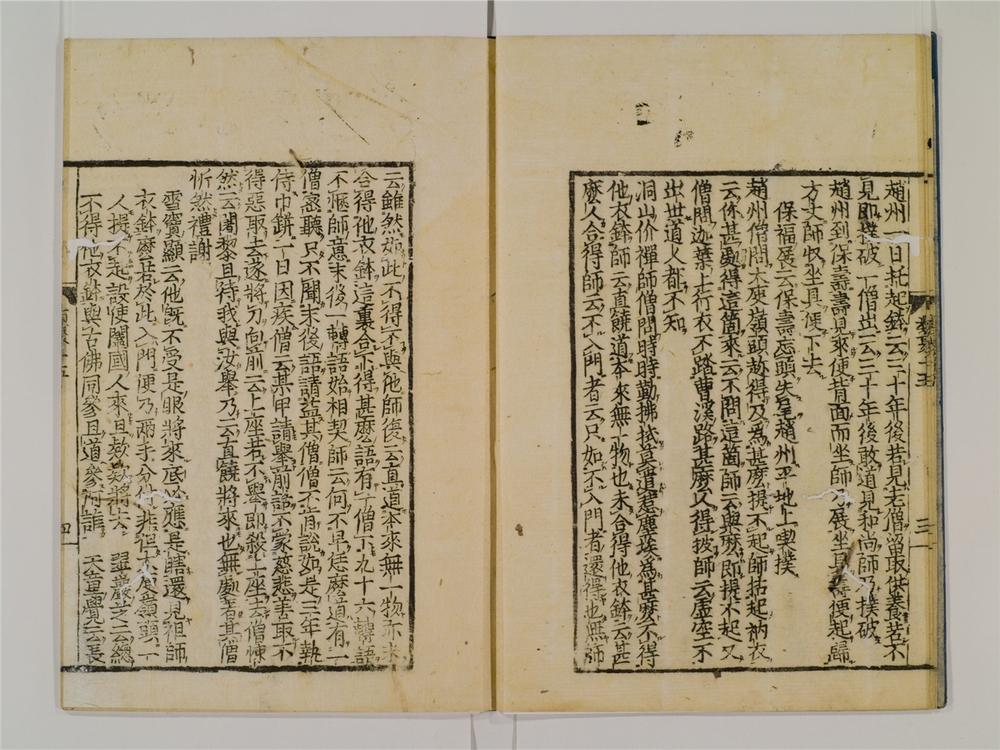 趙州一日托起鉢云二十年後若見老僧留取供養若不
見即撲破一僧出云二十年後敢道見和尚師乃撲破
趙州到保壽壽見來便背面而坐師方展坐具壽便起歸
方丈師收坐具便下去
保福展云保壽忘頭失尾趙州平地上喫撲
趙州僧問大庾嶺頭趂得及為甚麽提不起師拈起衲衣
云你甚處得這箇來云不問這箇師云與麽即提不起又
僧問迦葉上行衣不踏曹溪路甚麽人得披師云虛空不
出世道人都不知
洞山价禪師僧問時時勤拂拭莫遣惹塵埃為甚麽不得
他衣鉢師云直饒道本來無一物也未合得他衣鉢云甚
麽人合得師云不入門者云只如不入門者還得也無師
云雖然如此不得不與他師復云直道本來無一物亦未
合得他衣鉢這裏合下得甚麽語有一僧下九十六轉語
不愜師意末後一轉語始相契師云何不早恁麽道有一
僧密聽只不聞末後語請益其僧僧不肯說如是三年執
侍巾缾一日因疾僧云某甲請舉前話不蒙慈悲善取不
得惡取去遂將刀向前云上座若不舉即殺上座去僧悚
然云闍黎且待我與汝舉乃云直饒將來也無處著其僧
忻然禮謝
雪竇顯云他旣不受是眼將來底必應是瞎還見祖師
衣鉢麽若於此入門便乃兩手分付非但大庾嶺頭一
人提不起設使闔國人來且欵欵將去　翠巖芝云總
不得他衣鉢與古佛同參且道參阿誰　天童覺云長